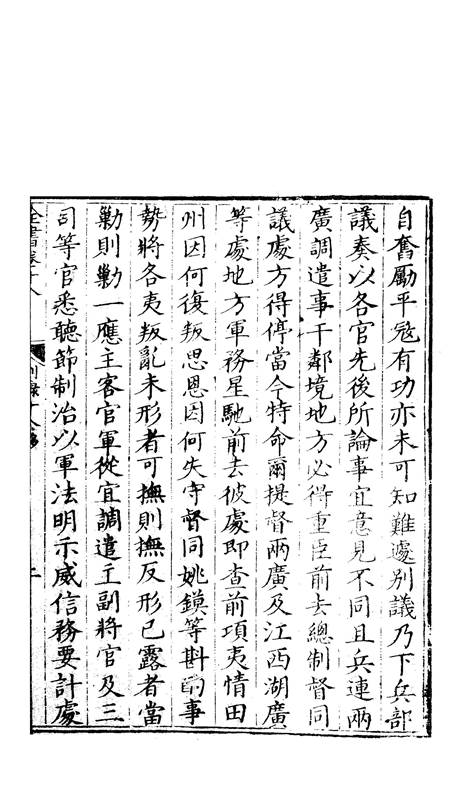 自奮勵平寇有功亦未可知難遽別議乃下兵部
議奏以各官先後所論事宜意見不同且兵連兩
廣調遣事干鄰境地方必得重臣前去總制督同
議處方得停當今特命爾提督兩廣及江西湖廣
等處地方軍務星馳前去彼處即查前項夷情田
州因何復叛思恩因何失守督同姚鏌等斟酌事
勢將各夷叛亂未形者可撫則撫反形已露者當
勦則勦一應主客官軍從宜調遣主副將官及三
司等官悉聽節制治以軍法明示威信務要計處
全書卷十八